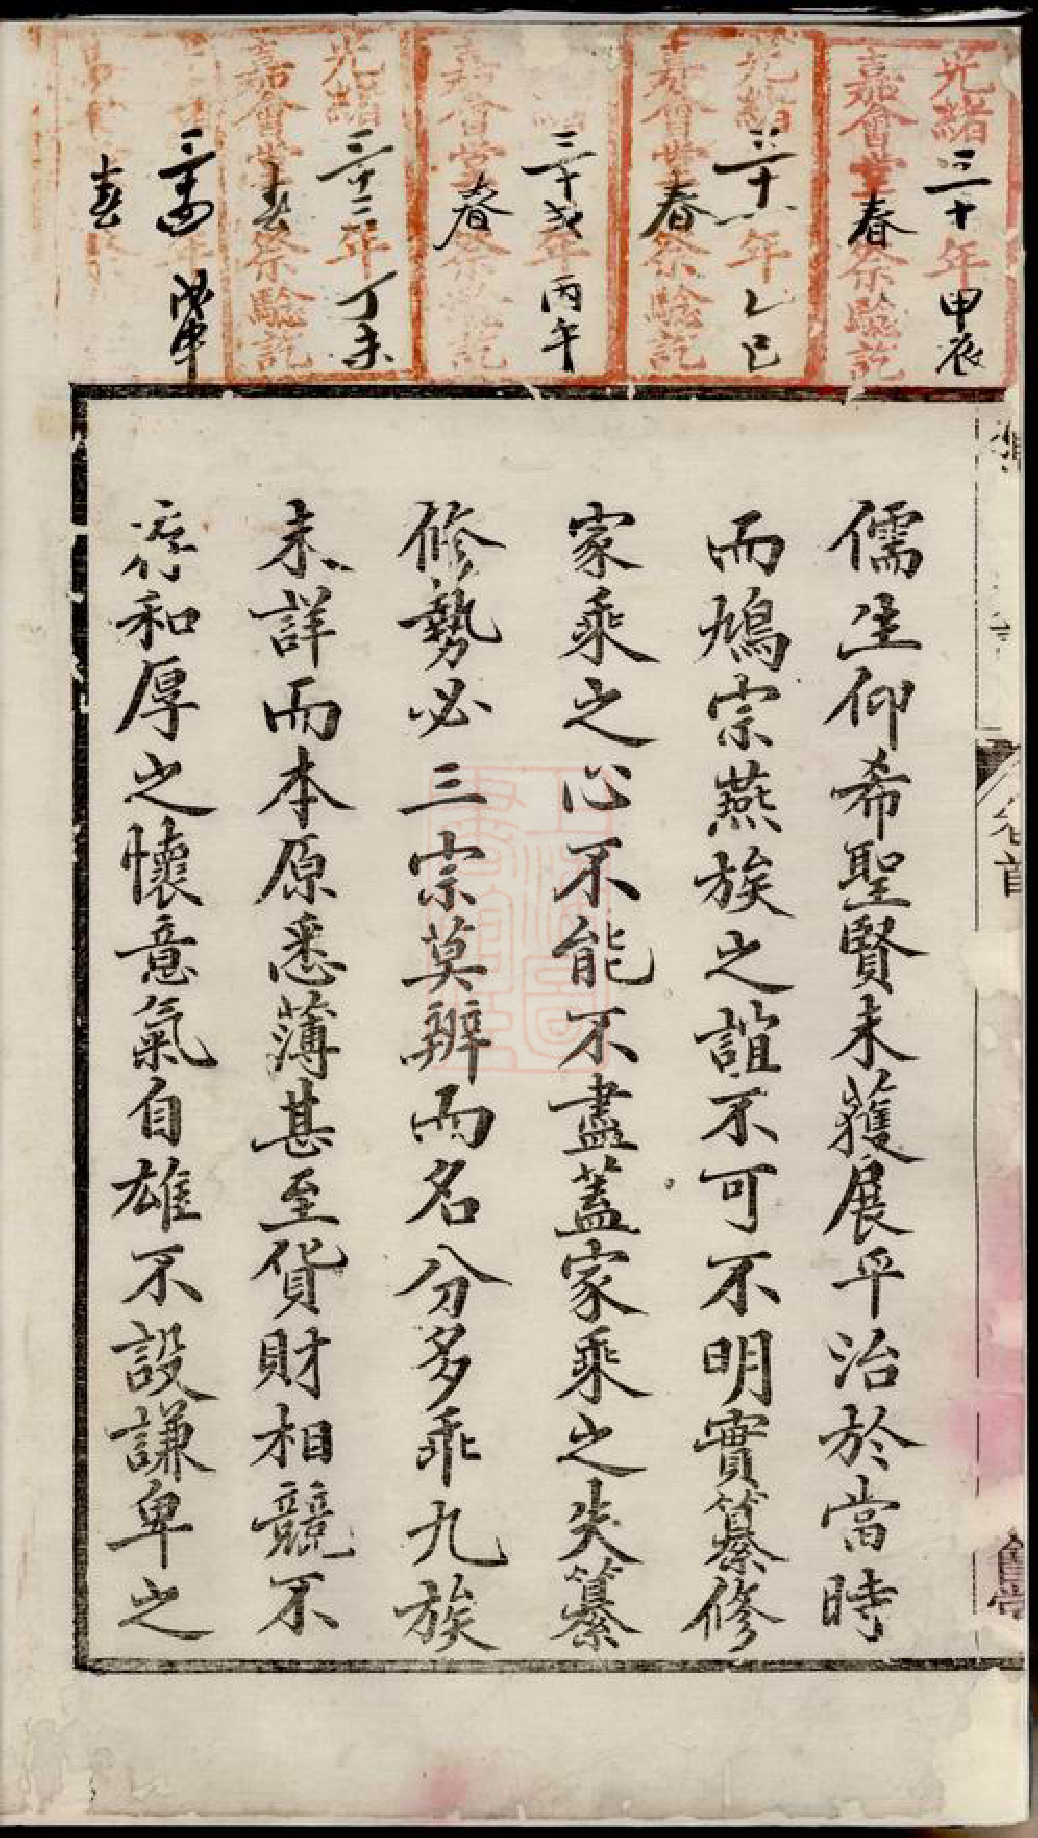 光緒三十年甲辰
嘉會堂春祭驗訖
光緒三十一年乙巳
嘉會堂春祭驗訖
三十弍年丙午
嘉會堂春祭驗訖
光緒三十三年丁未
嘉會堂春祭驗訖
年戊申
春
卷首
儒生仰希聖賢未獲展平治於當時
而鳩宗燕族之誼不可不明實纂修
家乘之心不能不盡蓋家乘之失纂
修勢必三宗莫辨而名分多乖九族
未詳而本原悉薄甚至貨財相競不
存和厚之懷意氣自雄不設謙卑之